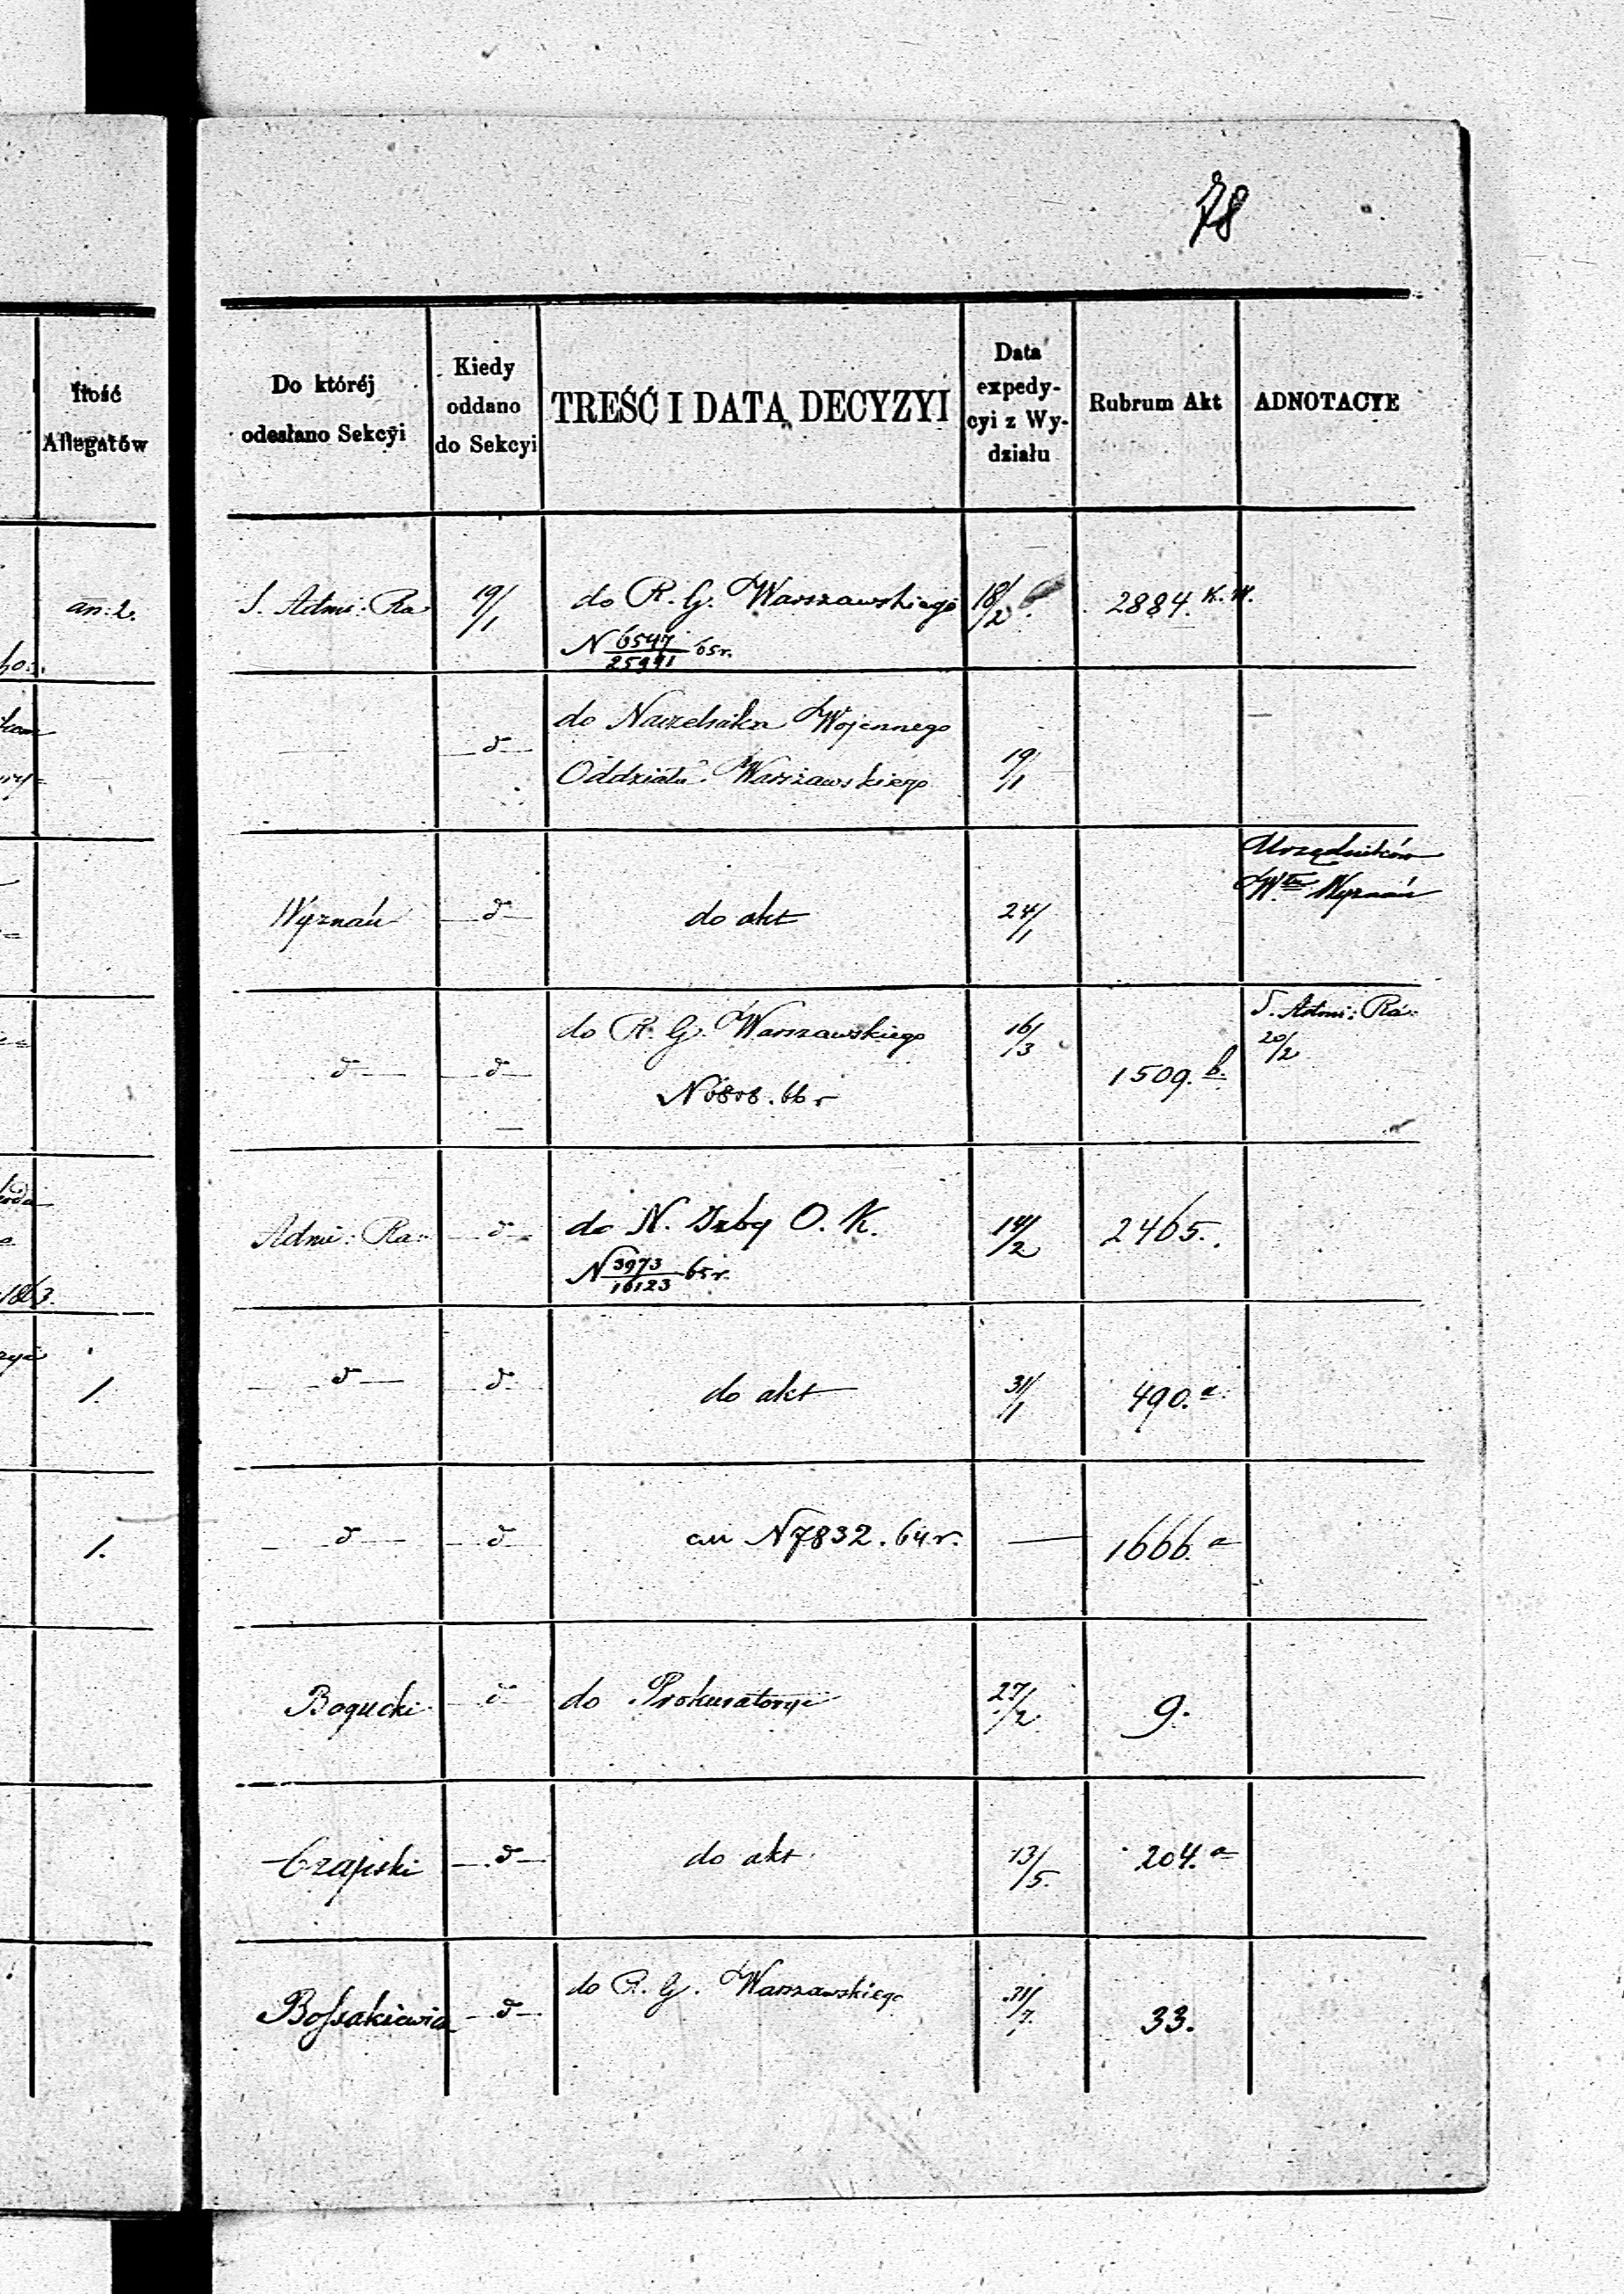 78
Ilość
Allegatów
Do któréj
odesłano Sekcyi
Kiedy
oddano
do Sekcyi
TREŚĆ I DATA DECYZYI
Data
expedy-
cyi z Wy-
działu
Rubrum Akt
ADNOTACYE
an: 2.
S. Admi: Ra
19/1
do R. G. Warszawskiego
N 6547/25991 65r.
18/2
2884. K. W.
— d —
do Naczelnika Wojennego
Oddziału Warszawskiego
19/1
Wyznań
— d —
do akt
24/1
Urzędników
Wtu Wyznań
— d —
— d —
do R. G. Warszawskiego
N 6808. 66 r
16/3
1509. b.
S. Admi: Ra:
20/2
1863.
Admi: Ra:
— d —
do N. Izby O. K.
N 3973/16123 65r.
14/2
2465.
1.
— d —
— d —
do akt
31/1
490. a
1.
— d —
— d —
au N 7832. 64 r.
—
1666. a
Bogucki
— d —
do Prokuratoryi
27/2
9.
Czajski
— d —
do akt
13/5.
204. a
Bossakiewicz
— d —
do R. G. Warszawskiego
31/7.
33.